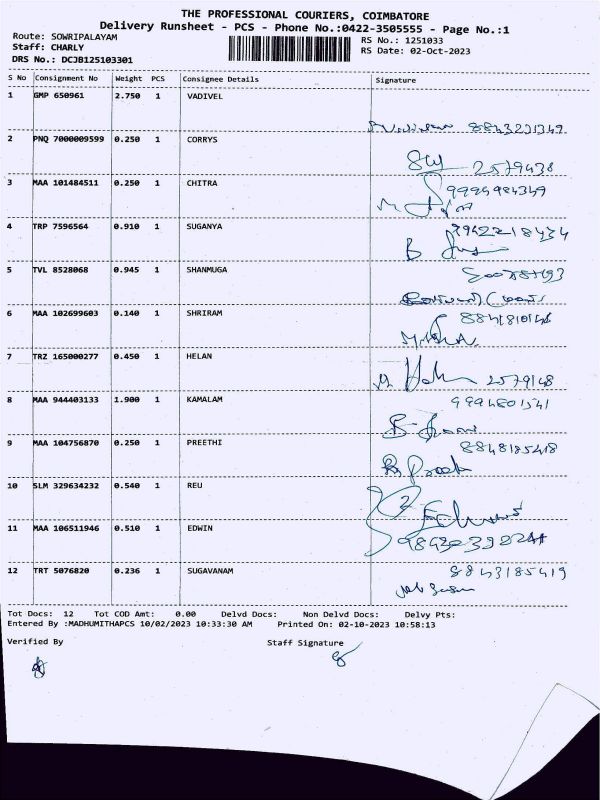 THE PROFESSIONAL COURIERS, COIMBATORE
Delivery Runsheet - PCS - Phone No.:0422-3505555 - Page No.:1
Route: SOWRIPALAYAM
RS No.: 1251033
Staff: CHARLY
RS Date: 02-Oct-2023
DRS No.: DCJB125103301
S No Consignment No Weight PCS Consignee Details Signature
1 GMP 650961 2.750 1 VADIVEL
8843231349
2 PNQ 7000009599 0.250 1 CORRYS
2579438
3 MAA 101484511 0.250 1 CHITRA
9994984349
4 TRP 7596564 0.910 1 SUGANYA
5 TVL 8528068 0.945 1 SHANMUGA
6 MAA 102699603 0.140 1 SHRIRAM
7 TRZ 165000277 0.450 1 HELAN
2579148
8 MAA 944403133 1.900 1 KAMALAM
9994801541
9 MAA 104756870 0.250 1 PREETHI
8848185418
10 SLM 329634232 0.540 1 REU
11 MAA 106511946 0.510 1 EDWIN
12 TRT 5076820 0.236 1 SUGAVANAM
8843185419
Tot Docs: 12 Tot COD Amt: 0.00 Delvd Docs: Non Delvd Docs: Delvy Pts:
Entered By :MADHUMITHAPCS 10/02/2023 10:33:30 AM Printed On: 02-10-2023 10:58:13
Verified By Staff Signature